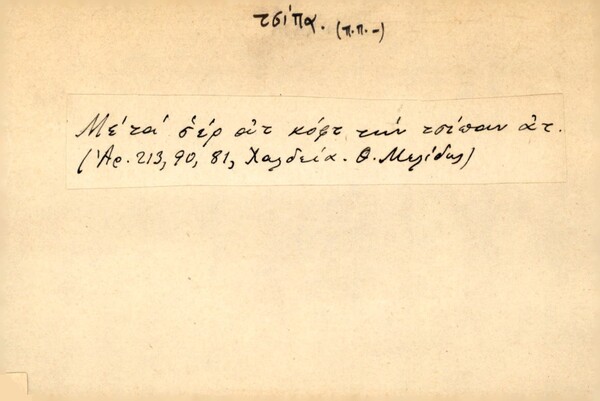 τσίπα. (π.π.-)
Μέ τά σ̌έρ͜ α̉τ κόφτ͜ τήν τσίπαν α̉τ.
(Ἀρ. 213, 90, 81, Χαλδεία. Θ. Μελίδης)